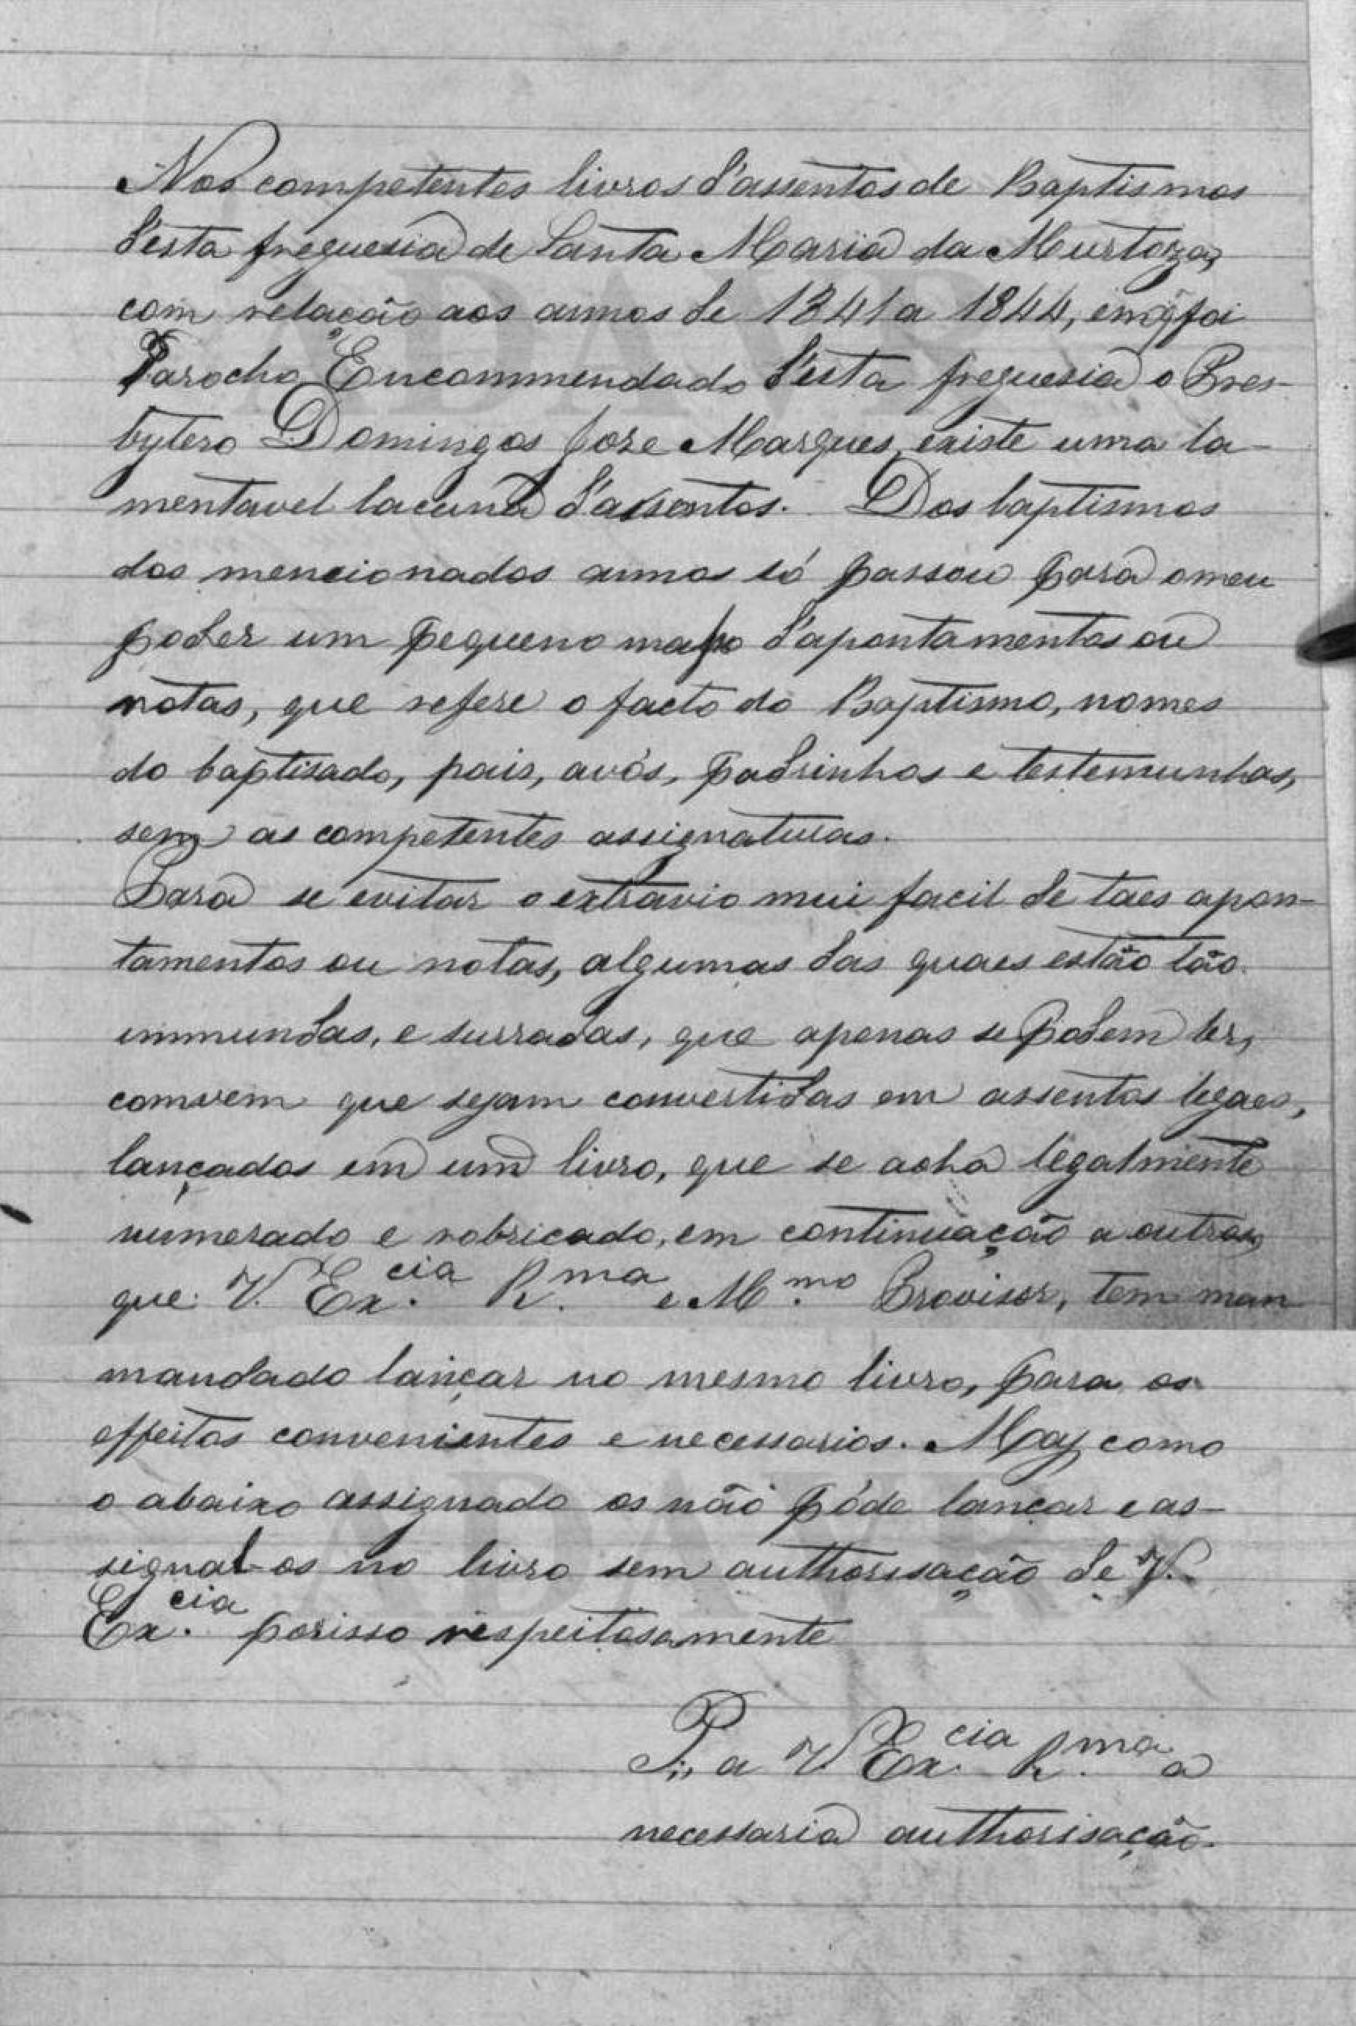 Nos competentes livros d'assentos de Baptismos
d'esta freguesia de Santa Maria da Murtoza,
com relação aos annos de 1841 a 1844, em q̃ foi
Parocho Encommendado d'esta freguesia o Pres-
bytero Domingos Jose Marques, existe uma la-
mentavel lacuna d'assentos. Dos baptismos
dos mencionados annos só passou para o meu
poder um pequeno masso d'apontamentos ou
notas, que refere o facto do Baptismo, nomes
do baptisado, pais, avós, padrinhos e testemunhas,
sem as competentes assignaturas.
Para se evitar o extravio mui facil de taes apon-
tamentos ou notas, algumas das quaes estão tão
immundas, e surradas, que apenas se podem ler,
comvem que sejam convertidas em assentos legaes,
lançados em um livro, que se acha legalmente
numerado e robricado, em continuação a outros
que V. Ex.cia R.ma e M.mo Provisor, tem man
mandado lançar no mesmo livro, para os
effeitos convenientes e necessarios. Mas, como
o abaixo assignado os não póde lançar e as-
signal-os no livro sem authorisação de V.
Ex.cia porisso respeitosamente
P. a V. Ex.cia R.ma a
necessaria authorisação.
ADAVR
ADAVR